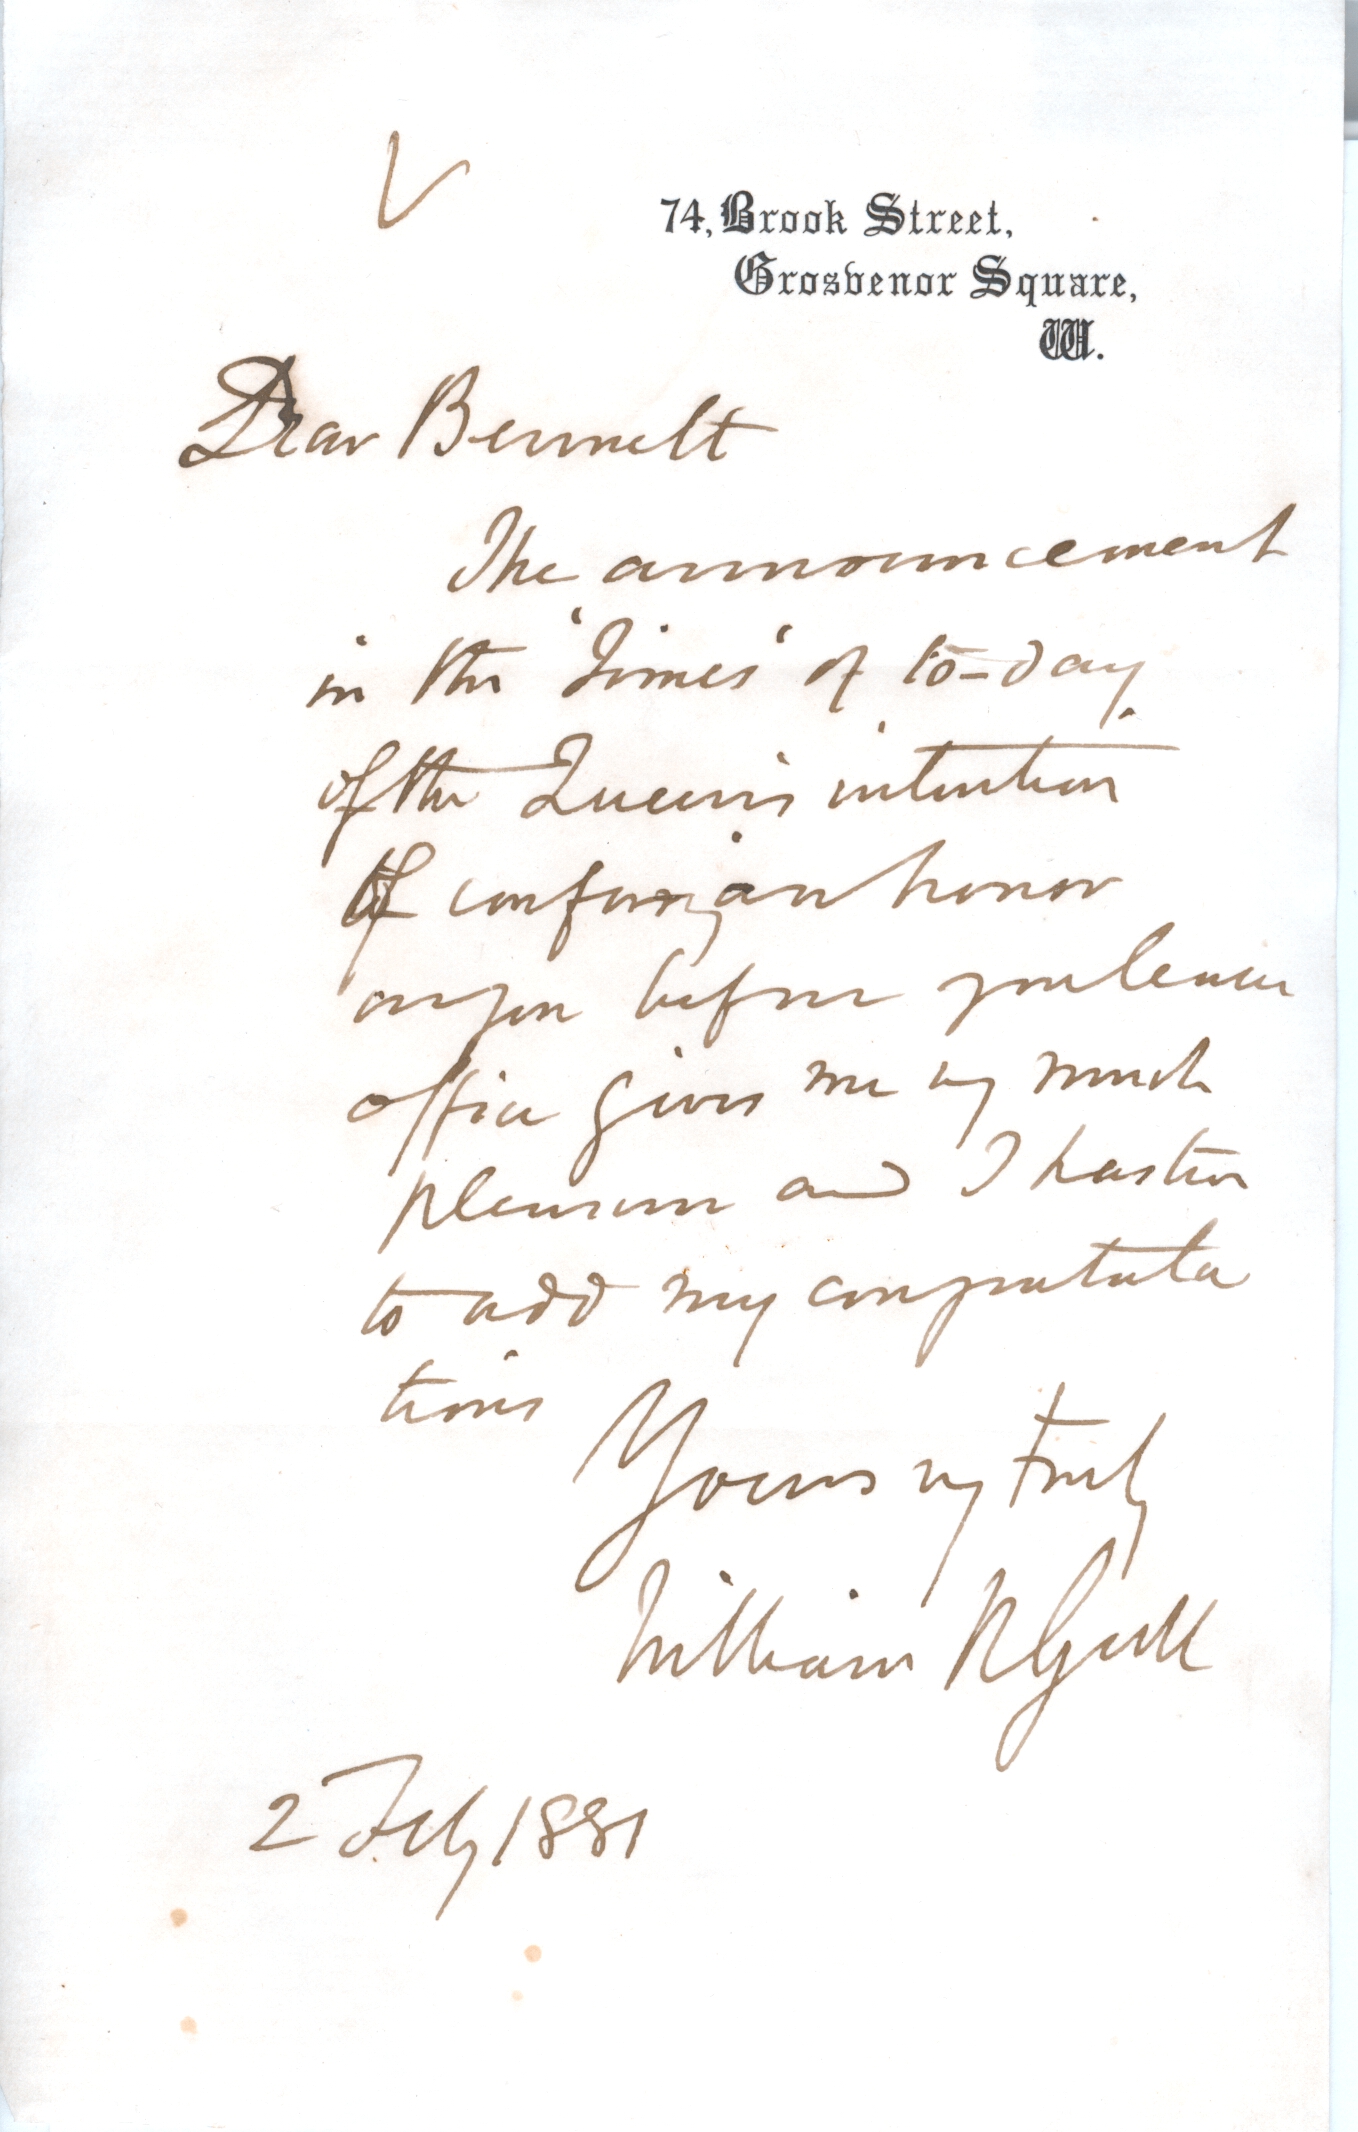 74, Brook Street,
Grosvenor Square,
W.
Dear Bennett
The announcement
in the 'Times' of to-day
of the Queen's intention
of conferring an honor
on you before you leave
office gives me vy much
pleasure and I hasten
to add my congratula
tions
Yours vy truly
William W Gull
2 Feby 1881